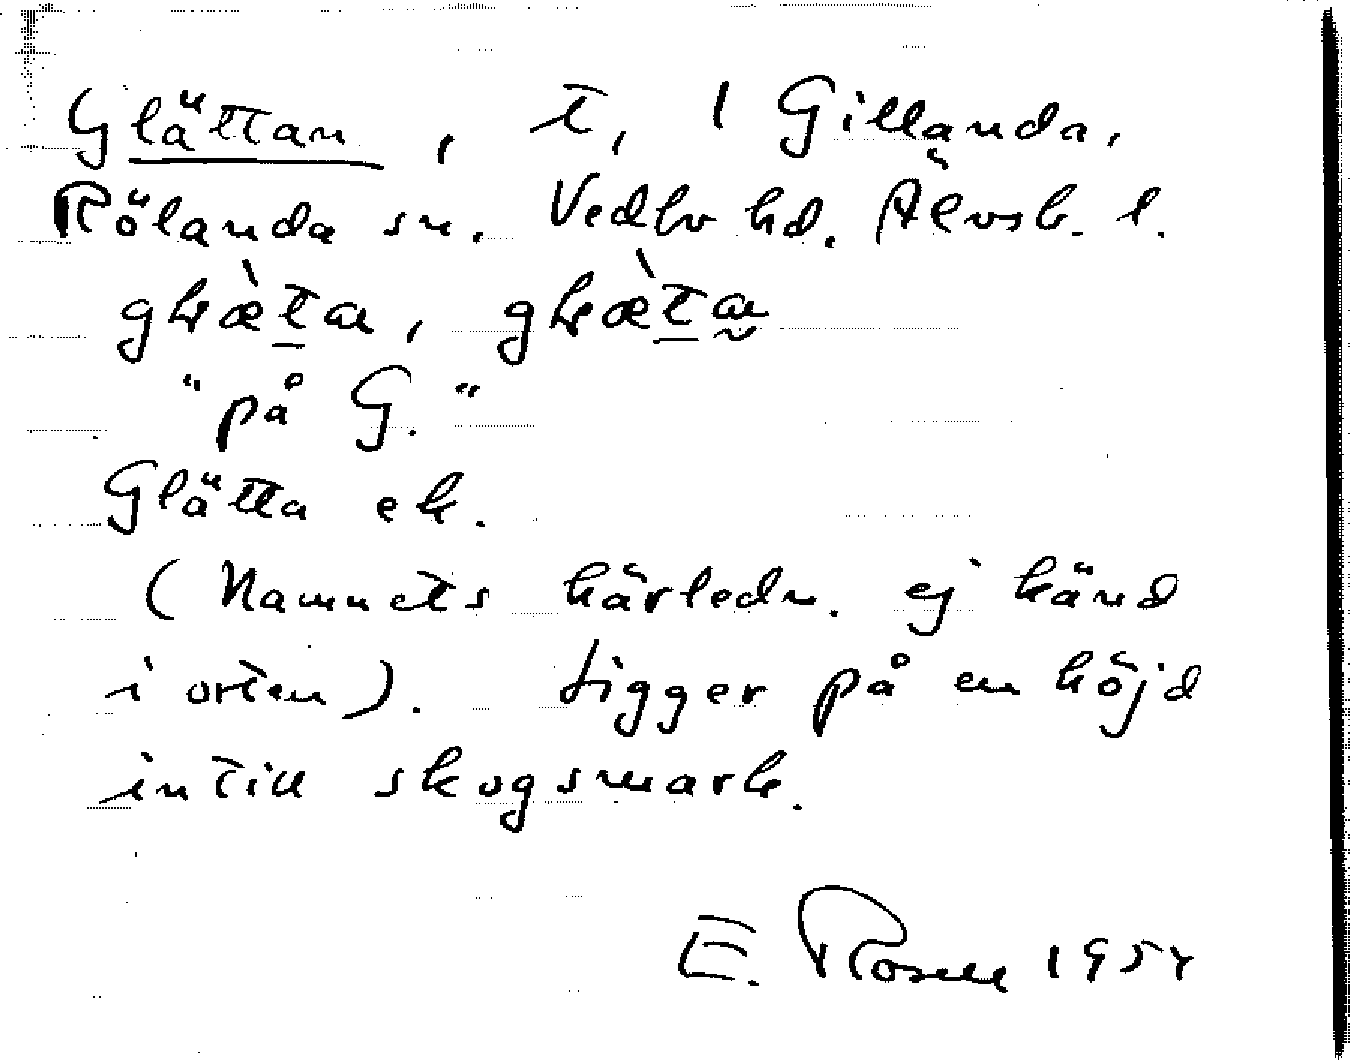 Glättan, t, 1 Gillanda,
Rölanda sn. Vedbo hd. Älvsb. l.
"på G."
Glätta ek.
(Namnets härledn. ej känd
i orten). Ligger på en höjd
intill skogsmark.
E. Rosell 1954